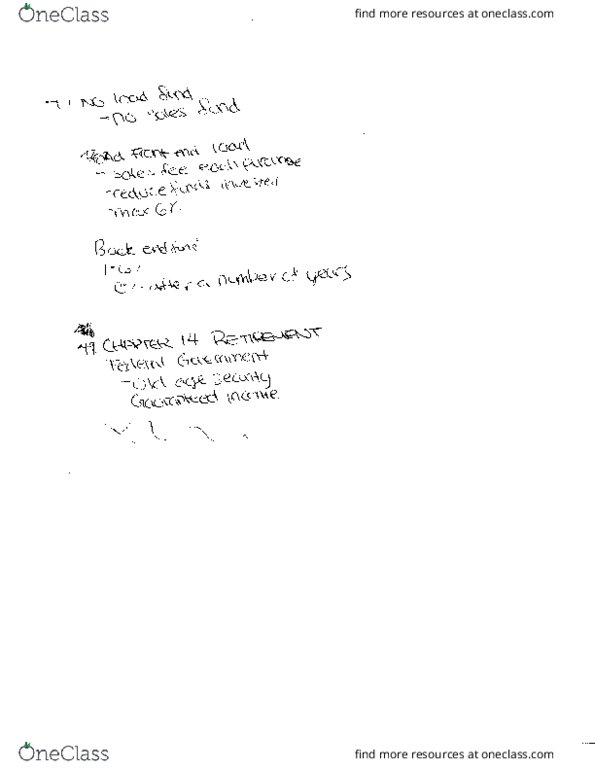 OneClass
find more resources at oneclass.com
No load fund
- no sales fund
Front end load
- sales fee each purchase
- reduce funds invested
- max 6%
Back end fund
1-6%
0% after a number of years
49 CHAPTER 14 RETIREMENT
Federal Government
- Old age security
Guaranteed income
OneClass
find more resources at oneclass.com